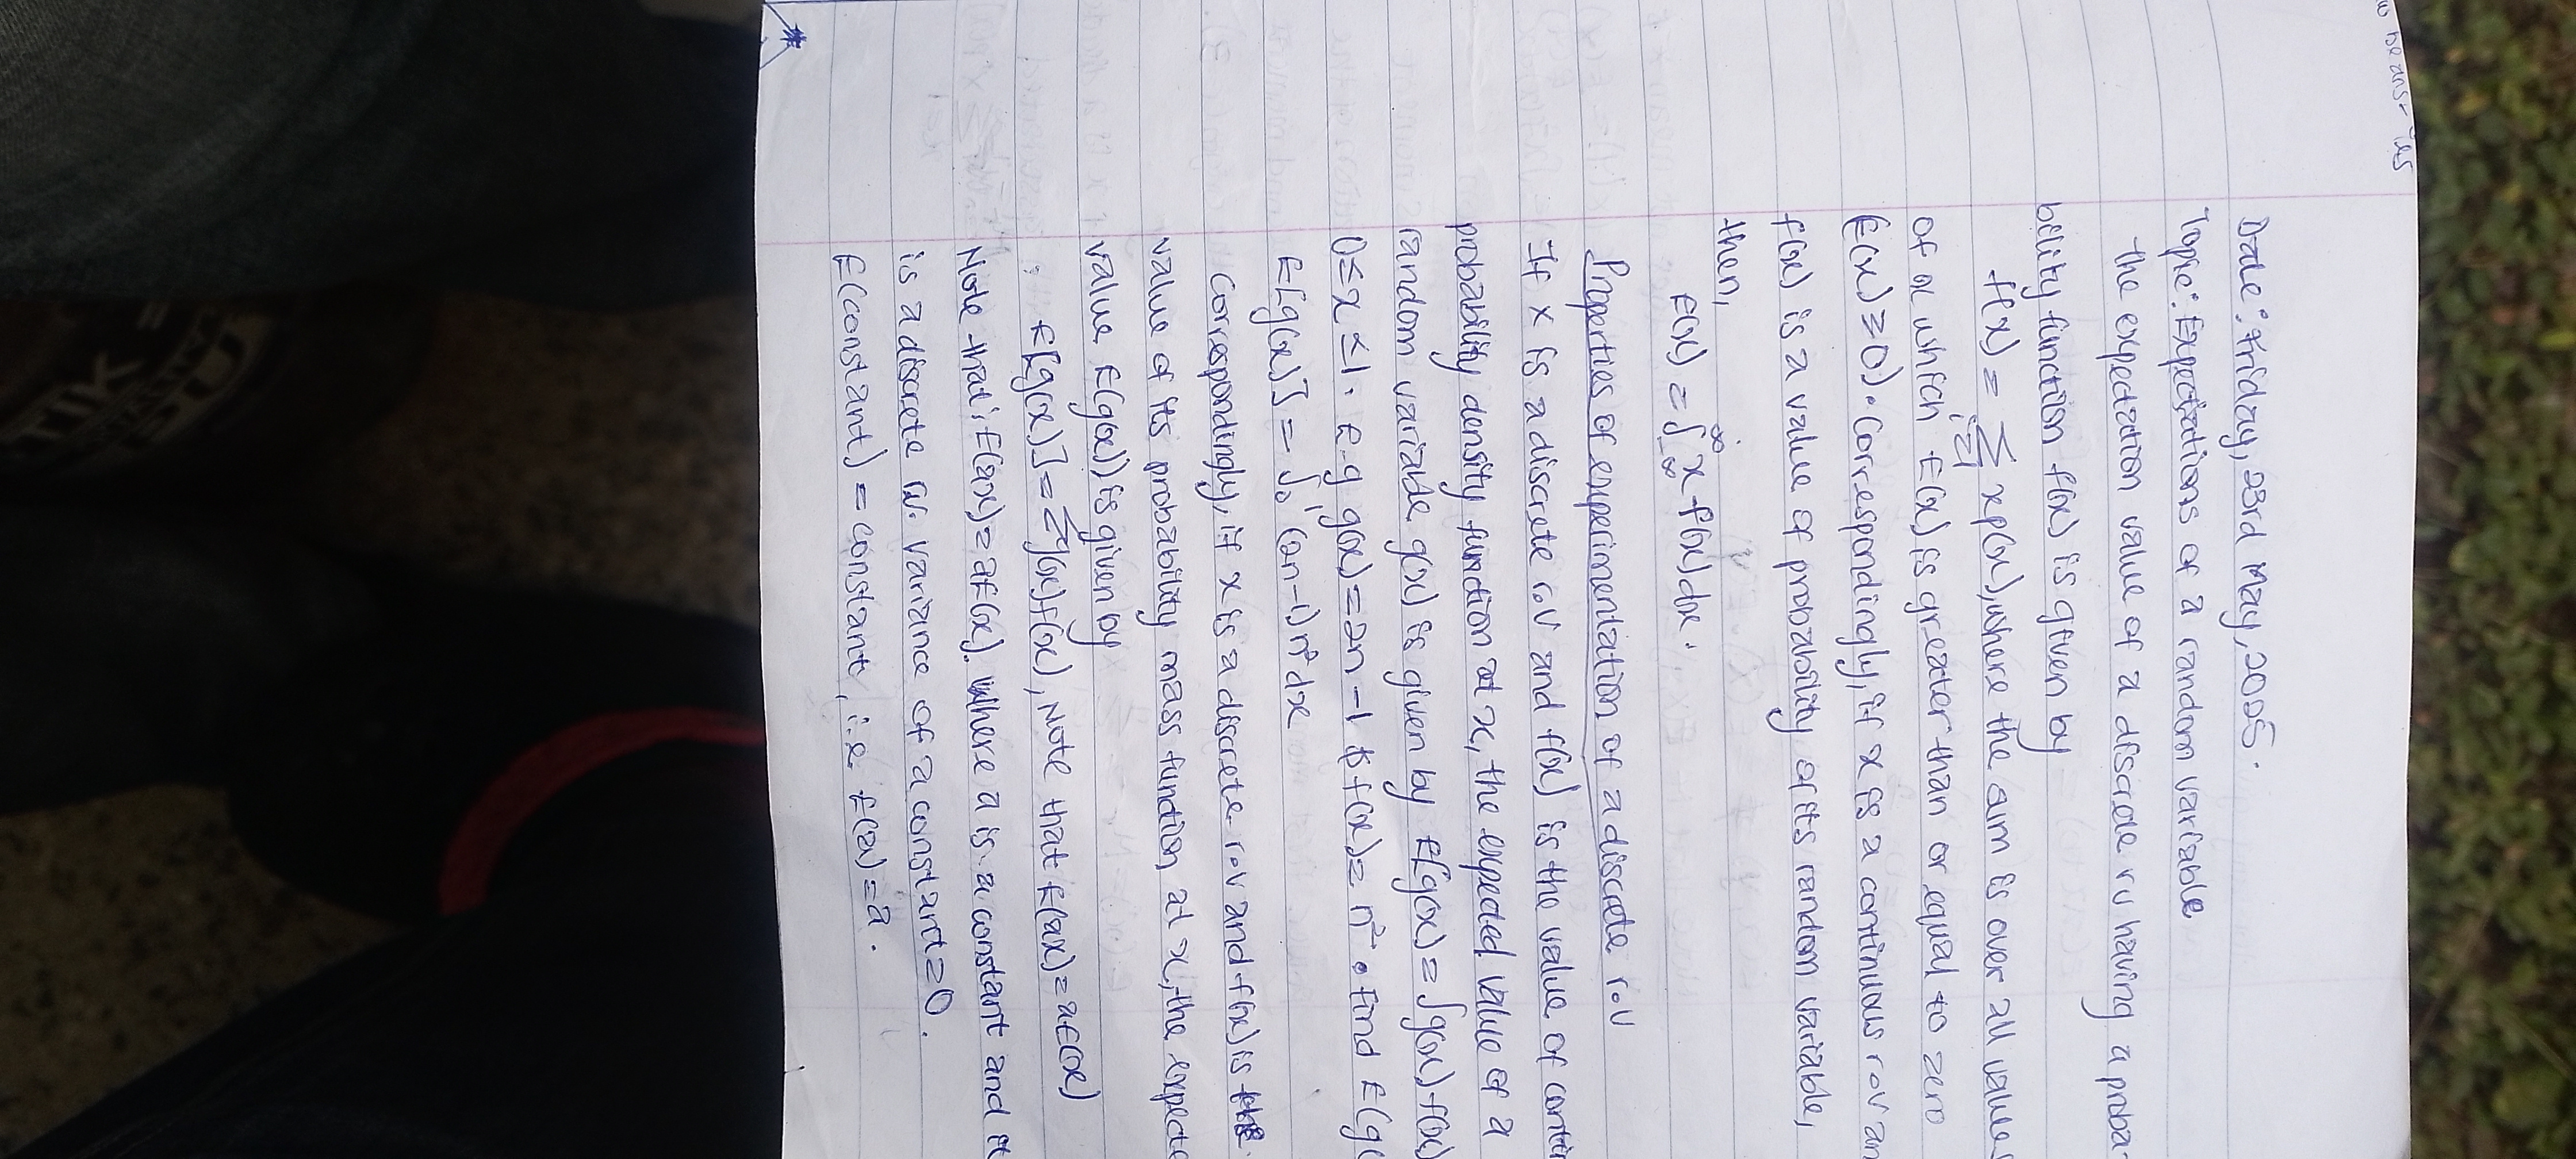 to be ans- yes
Date: Friday, 23rd May, 2025.
Topic: Expectations of a random variable
the expectation value of a discrete rv having a proba-
bility function f(x) is given by
f(x) = ∑ᵢ₌₁ xp(x), where the aim is over all values
of x which E(x) is greater than or equal to zero
(E(x) ≥ 0). Correspondingly, if x is a continuous r.v an
f(x) is a value of probability of its random variable,
then,
E(x) = ∫₋∞^∞ x f(x) dx.
Properties of experimentation of a discrete r.v
If x is a discrete r.v and f(x) is the value of conti
probability density function at x, the expected value of a
random variable g(x) is given by E[g(x) = ∫g(x) f(x)
0 ≤ x ≤ 1. E.g g(x) = 2n - 1 & f(x) = n². find E(g(
E[g(x)] = ∫₀¹ (2n-1)n² dx
Correspondingly, if x is a discrete r.v and f(x) is the
value of its probability mass function at x, the expecte
value E(g(x)) is given by
: E[g(x)] = ∑g(x)f(x), Note that E(ax) = aE(x)
Note that; E(ax) = aE(x). Where a is a constant and
is a discrete rv. variance of a constant = 0.
E(constant) = constant, i.e E(a) = a.
TIK